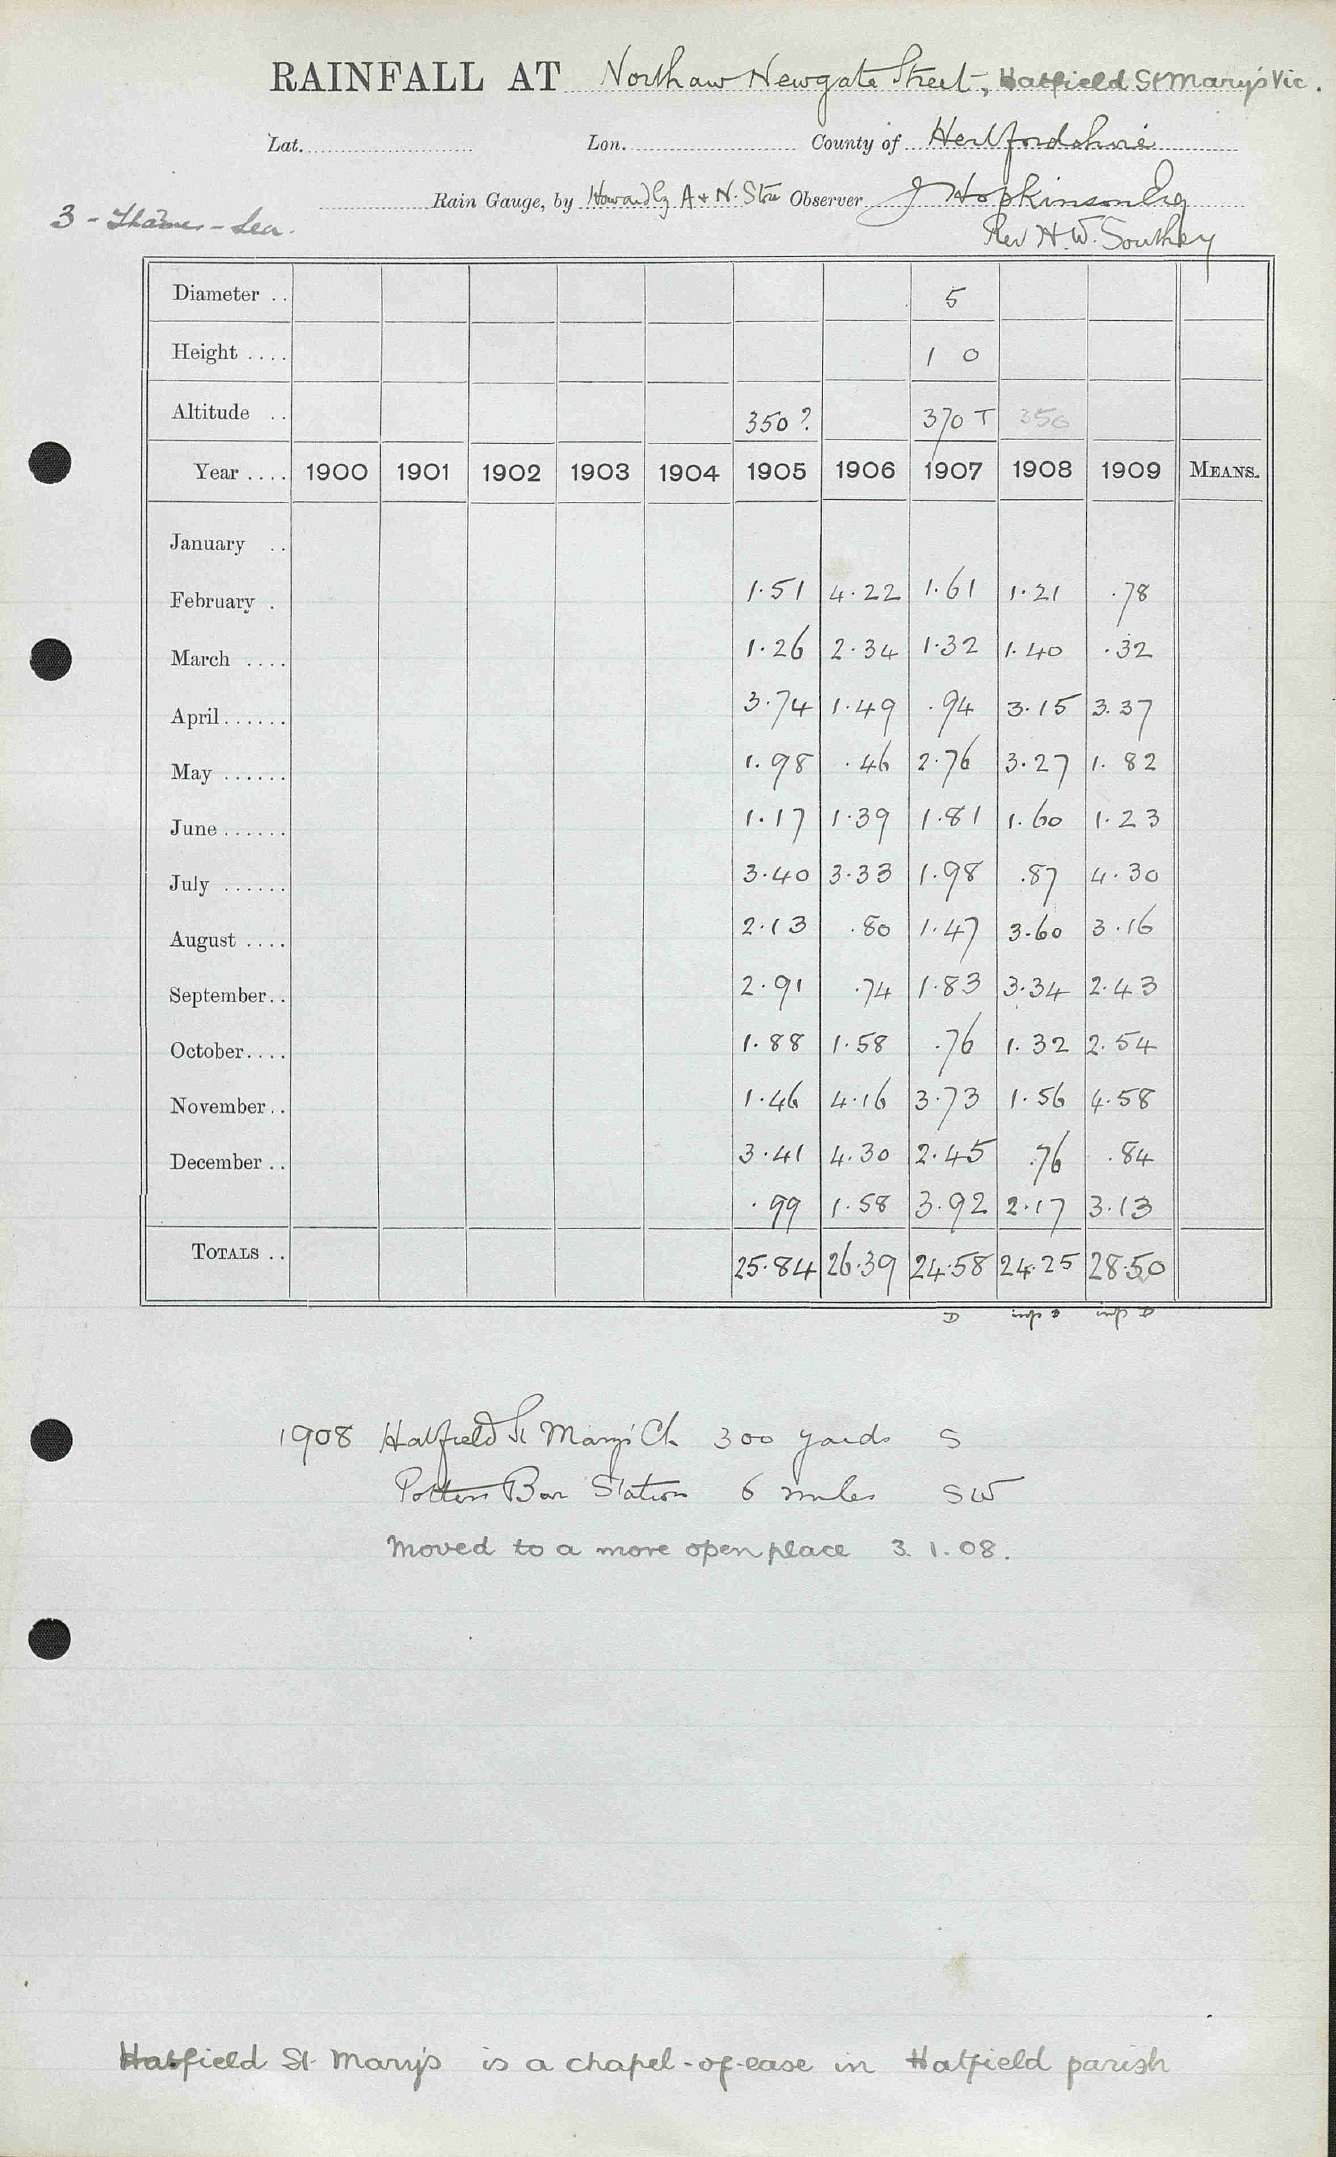 RAINFALL AT Northaw Newgate Street, Hatfield St Mary's Vic.
Lat. Lon. County of Hertfordshire
Rain Gauge, by Howard by A & N. Store Observer J Hopkinson Esq
3 - Thames - Lea.
Rev H. W. Southey
Diameter .. 5
Height .... 1 0
Altitude .. 350? 370 T 350
Year .... 1900 1901 1902 1903 1904 1905 1906 1907 1908 1909 MEANS.
January ..
1.51 4.22 1.61 1.21 .78
February .
1.26 2.34 1.32 1.40 .32
March ....
3.74 1.49 .94 3.15 3.37
April ......
1.98 .46 2.76 3.27 1.82
May ......
1.17 1.39 1.81 1.60 1.23
June ......
3.40 3.33 1.98 .87 4.30
July ......
2.13 .80 1.47 3.60 3.16
August ....
2.91 .74 1.83 3.34 2.43
September..
1.88 1.58 .76 1.32 2.54
October....
1.46 4.16 3.73 1.56 4.58
November..
3.41 4.30 2.45 .76 .84
December ..
.99 1.58 3.92 2.17 3.13
TOTALS .. 25.84 26.39 24.58 24.25 28.50
D imp D imp D
1908 Hatfield St Mary's Ch. 300 yards S
Potters Bar Station 6 miles SW
Moved to a more open place 3.1.08.
Hatfield St Mary's is a chapel-of-ease in Hatfield parish